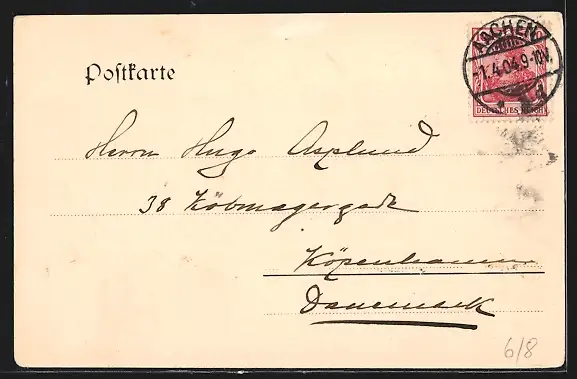 Postkarte
AACHEN
-1.4.04.9-10V.
DEUTSCHES REICH
Herrn Hugo Asplund
38 Köbmagergade
Köpenhamn
Danemark
6/8